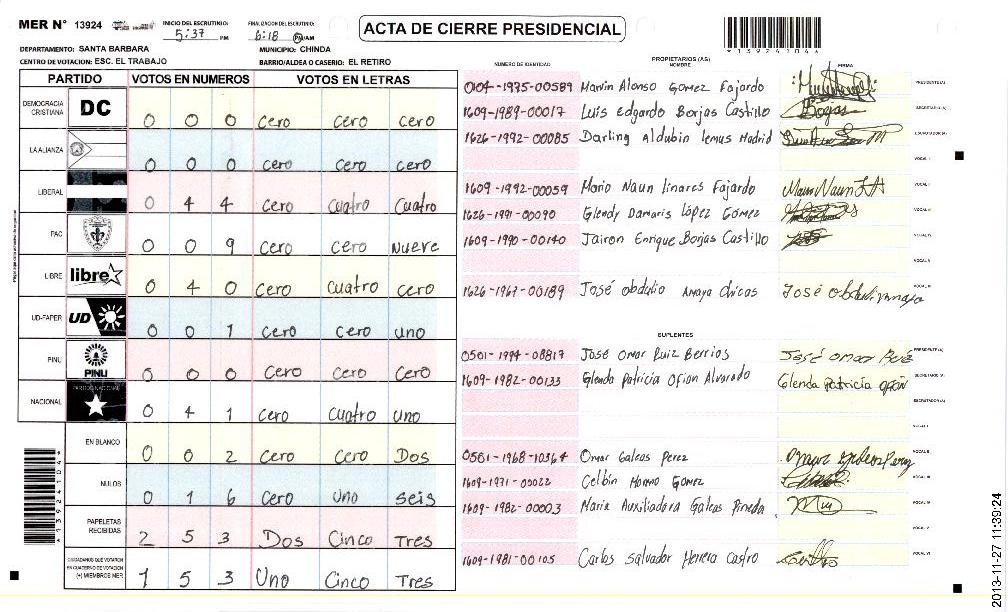 MER N° 13924
INICIO DEL ESCRUTINIO: 5:37 PM
FINALIZACION DEL ESCRUTINIO: 6:18 PM/AM
ACTA DE CIERRE PRESIDENCIAL
*13924104*
DEPARTAMENTO: SANTA BARBARA MUNICIPIO: CHINDA
CENTRO DE VOTACION: ESC. EL TRABAJO BARRIO/ALDEA O CASERIO: EL RETIRO
PARTIDO VOTOS EN NUMEROS VOTOS EN LETRAS
DEMOCRACIA CRISTIANA DC 0 0 0 cero cero cero
LA ALIANZA 0 0 0 cero cero cero
LIBERAL 0 4 4 cero cuatro cuatro
PAC 0 0 9 cero cero Nueve
LIBRE libre 0 4 0 cero cuatro cero
UD-FAPER UD 0 0 1 cero cero uno
PINU PINU 0 0 0 cero cero cero
NACIONAL 0 4 1 cero cuatro uno
EN BLANCO 0 0 2 cero cero Dos
NULOS 0 1 6 cero uno seis
PAPELETAS RECIBIDAS 2 5 3 Dos Cinco Tres
CIUDADANOS QUE VOTARON EN CUADERNO DE VOTACION (+) MIEMBROS MER 1 5 3 Uno Cinco Tres
PROPIETARIOS (AS)
NUMERO DE IDENTIDAD NOMBRE FIRMA
0104-1975-00589 Marvin Alonso Gomez Fajardo PRESIDENTE(A)
1609-1989-00017 Luis Edgardo Borjas Castillo Borjas SECRETARIO(A)
1626-1992-00085 Darling Aldubin Lemus Madrid ESCRUTADOR(A)
VOCAL I
1609-1992-00059 Mario Naun Linares Fajardo
1626-1991-00090 Glendy Damaris López Gómez
1609-1990-00140 Jairon Enrique Borjas Castillo
1626-1967-00189 José Obdulio Amaya Chicas
SUPLENTES
0501-1994-08817 José Omar Ruiz Berrios José Omar Ruiz PRESIDENTE(A)
1609-1982-00133 Glenda Patricia Ofion Alvarado Glenda Patricia SECRETARIO(A)
ESCRUTADOR(A)
0501-1968-10364 Omar Galeas Perez
1609-1971-00022 Gomez
1609-1982-00003 Maria Auxiliadora Galeas Pineda
1609-1981-00105 Carlos Salvador Herrera Castro
*13924104*
2013-11-27 11:39:24